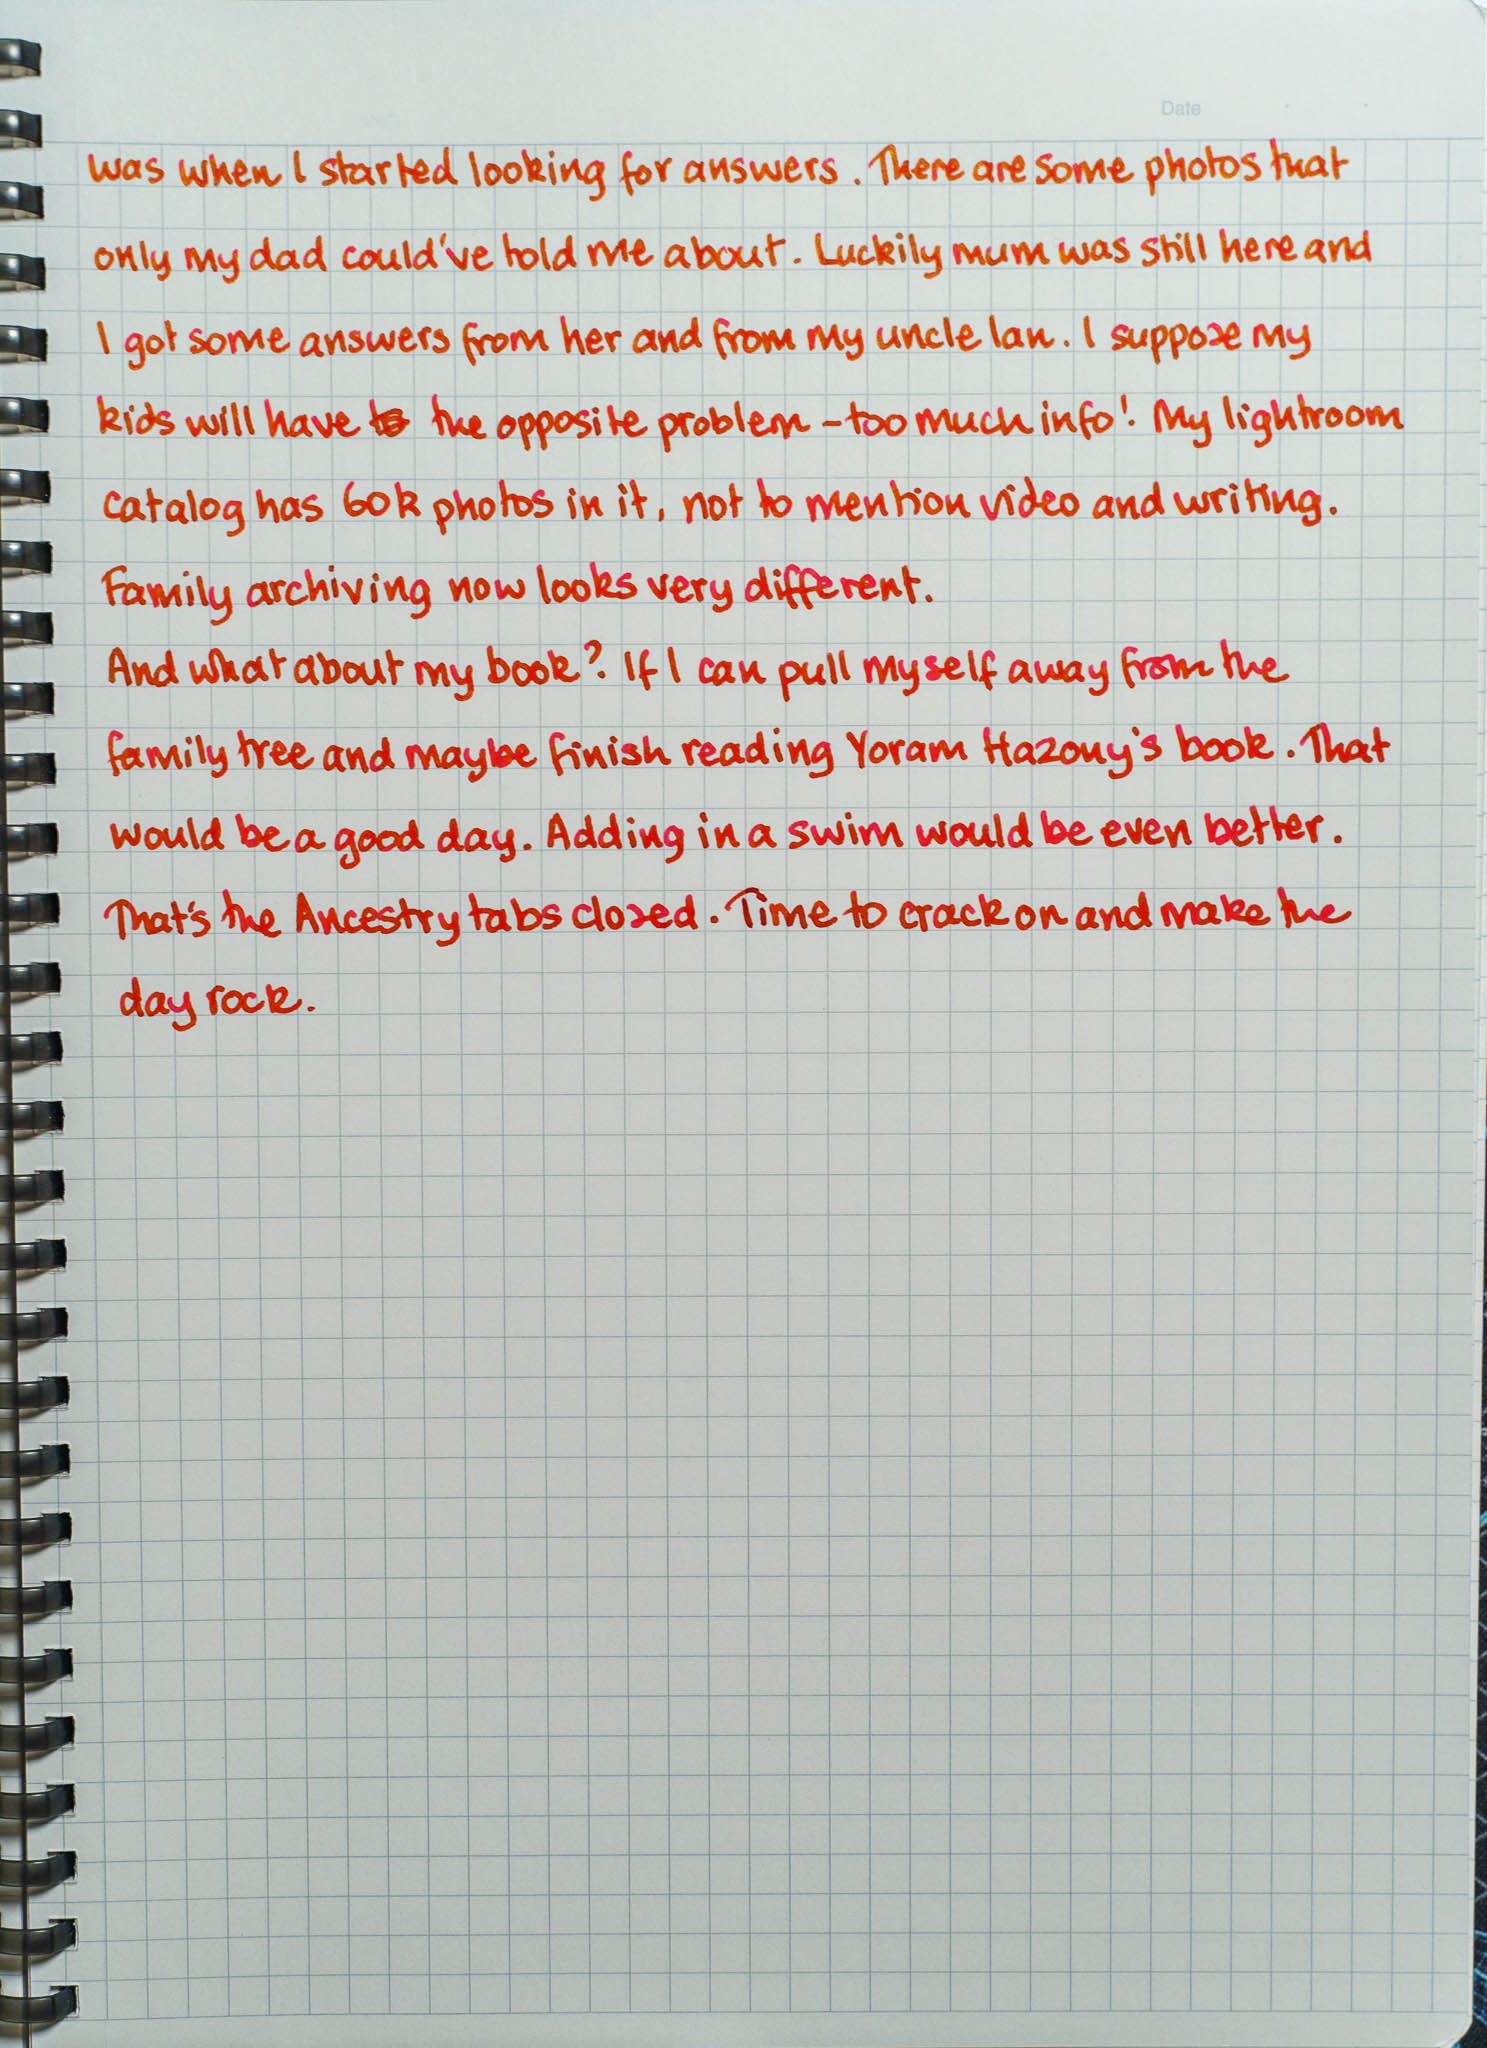 Date
was when I started looking for answers. There are some photos that
only my dad could've told me about. Luckily mum was still here and
I got some answers from her and from my uncle Ian. I suppose my
kids will have the opposite problem - too much info! My lightroom
catalog has 60k photos in it, not to mention video and writing.
Family archiving now looks very different.
And what about my book? If I can pull myself away from the
family tree and maybe finish reading Yoram Hazony's book. That
would be a good day. Adding in a swim would be even better.
That's the Ancestry tabs closed. Time to crack on and make the
day rock.